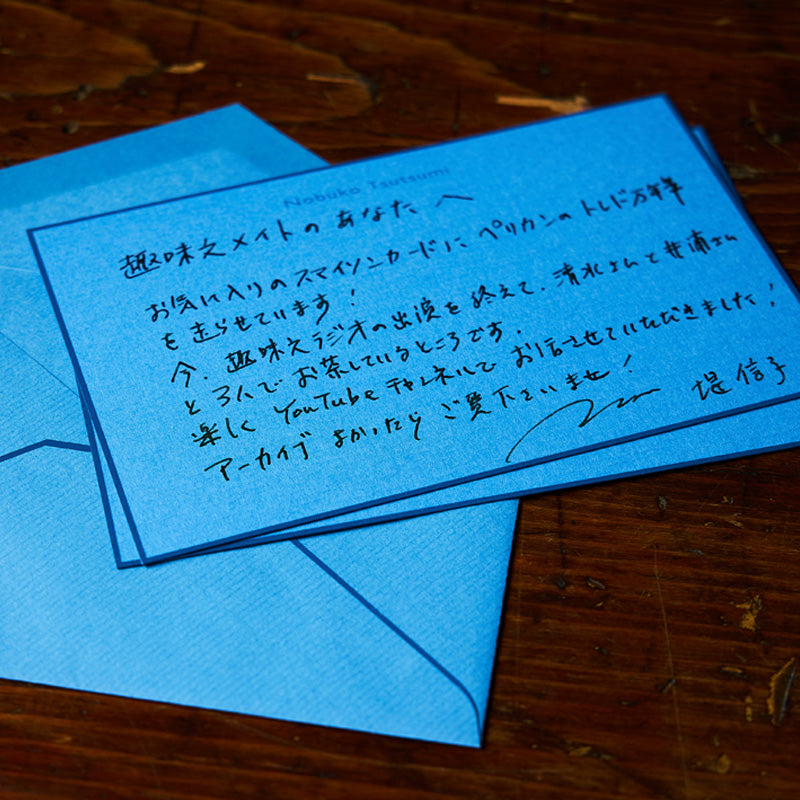 Nobuko Tsutsumi
趣味文メイトのあなたへ
お気に入りのスマイソンカードにペリカンのトレド万年筆
を走らせています!
今、趣味文ラジオの出演を終えて、清水さんと井浦さん
と3人でお茶しているところです。
楽しくYouTubeチャンネルでお話させていただきました!
アーカイブよかったらご覧下さいませ!
堤信子